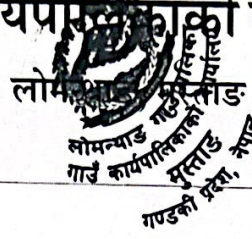 यपालिकाको
लोमन्थाङ मुस्ताङ
लोमन्थाङ गाउँपालिका
गाउँ कार्यपालिकाको कार्यालय
मुस्ताङ
गण्डकी प्रदेश, नेपाल